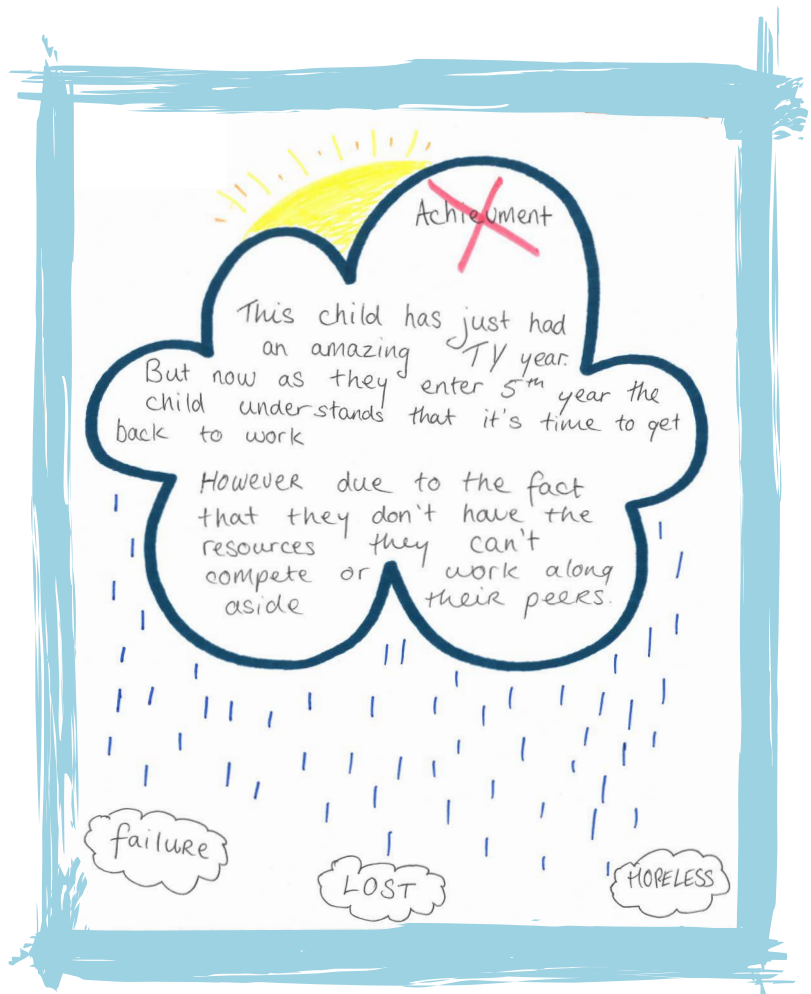 Achievment
This child has just had
an amazing TY year.
But now as they enter 5th year the
child understands that it's time to get
back to work
However due to the fact
that they don't have the
resources they can't
compete or work along
aside their peers.
failure
LOST
HOPELESS